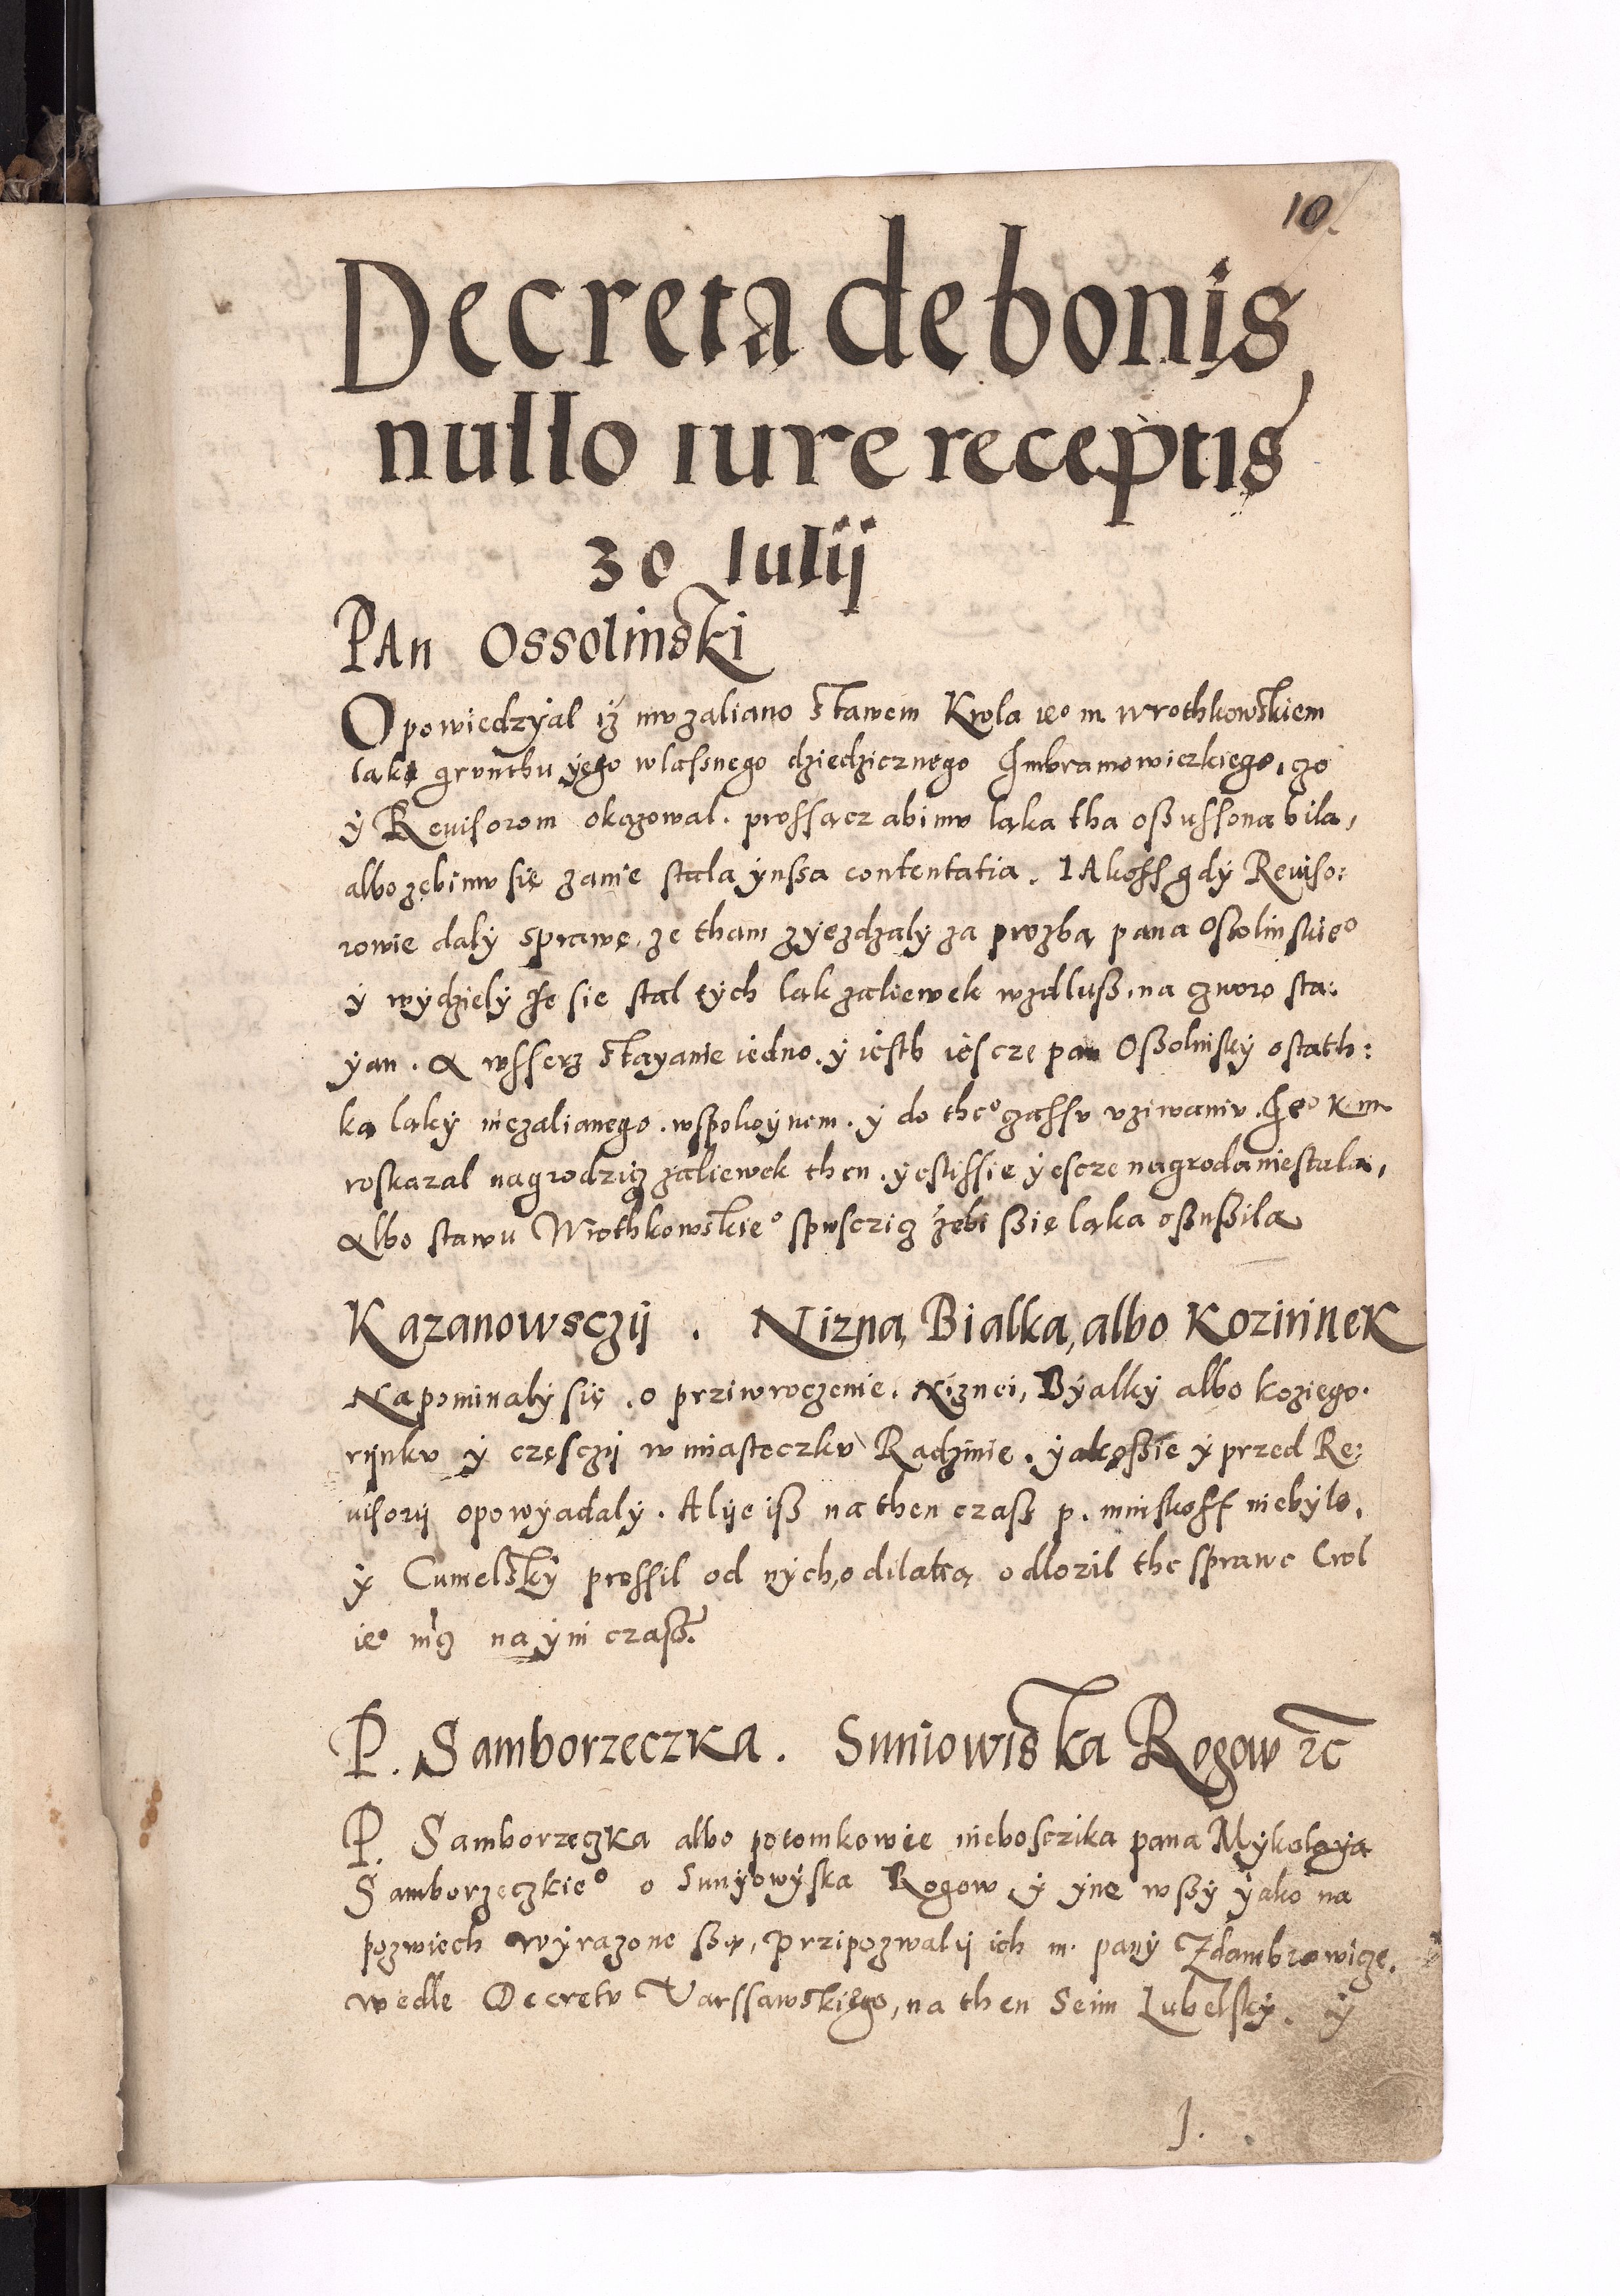 10.
Decreta de bonis
nullo iure receptis
30 Iulij
PAn Ossolinski
Opowiedzÿal iż mv zaliano stawem Krola ieo m wrothkowskiem
laką grvnthu ÿego wlassnego dziedzicznego Imbramowiczkiego, czo
ÿ Reuisorom okazowal. prossącz abi mv ląka tha oßussona bila,
albo żebi mv się za nie stala ÿnssa contentatia. IAkoss gdÿ Reuiso:
rowie dalÿ sprawę, ze tham zÿezdzalÿ za prozbą pana Ossolinskieo
ÿ wÿdzielÿ że sie stal tÿch lak zaliewek wzdluß, na czworo sta:
ÿan. A wsserz stayanie iedno. ÿ iesth iescze pan Oßolinskÿ ostath:
ka lakÿ niezalianego. wspokoÿnem. ÿ do theo czassv vziwaniv. Ieo K m
roskazal nagrodzicz zaliewek then. ÿestissie ÿescze nagroda niestala,
Albo stawu Wrothkowskieo spuscicz żebi ßię ląka oßußila
Kazanowsczij . Nizna Bialka, albo Kozirinek
Napominalÿ się, o prziwroczenie. Niznei, Bÿalkÿ albo koziego
rijnkv ÿ częsczij w miasteczkv Radzinie. ÿakoßie ÿ przed Re:
uisorij opowÿadalÿ. Alije iß na then czaß p. mniskoff niebÿlo,
ÿ Cumelskÿ prossil od nÿch, o dilatią odlozil the sprawe Crol
ieo mcz na ÿni czaß.
P. Samborzeczka. Suniowiska Rogow etc
P. Samborzeczka albo potomkowie nieboscika pana Mÿkolaÿa
Samborzeczkieo o Sunÿowÿska Rogow ÿ ÿne wßÿ ÿako na
pozwiech wÿrazone ßą, przipozwalij ich m. panÿ Zdambrowicze,
wedle Decretv Varssawskiego, na then Seim Lubelskÿ. ÿ
J.